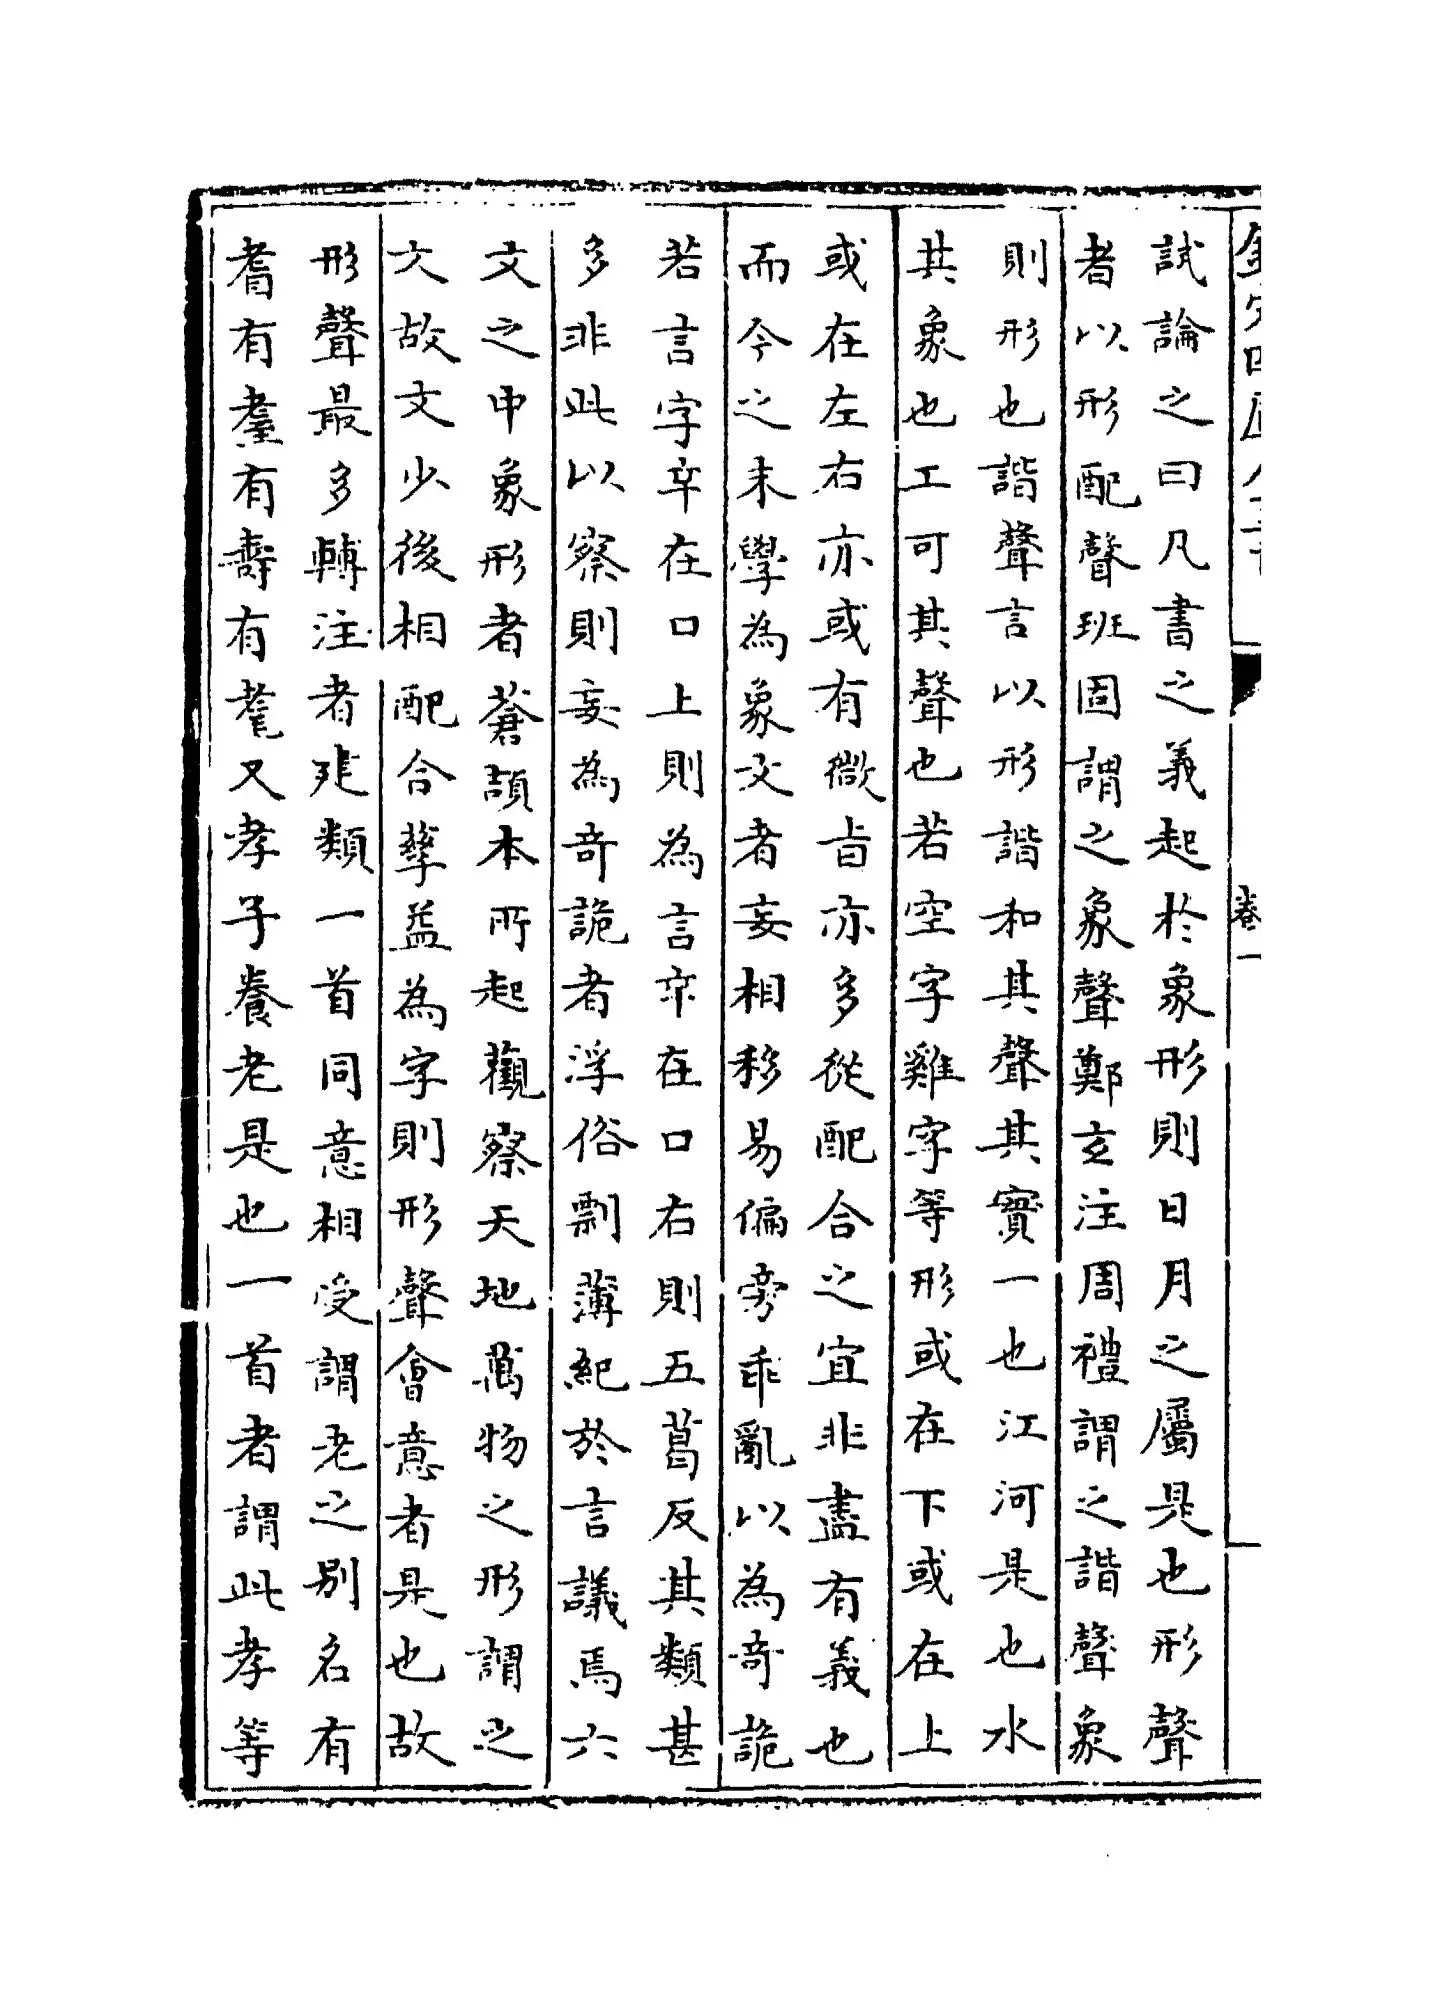 試論之曰凡書之義起於象形則日月之屬是也形聲
者以形配聲班固謂之象聲鄭玄注周禮謂之諧聲象
則形也諧聲言以形諧和其聲其實一也江河是也水
其象也工可其聲也若空字雞字等形或在下或在上
或在左右亦或有微旨亦多從配合之宜非盡有義也
而今之末學為象文者妄相移易偏旁乖亂以為奇詭
若言字辛在口上則為言䇂在口右則五葛反其類甚
多非此以察則妄為奇詭者浮俗剽薄紀於言議焉六
文之中象形者蒼頡本所起觀察天地萬物之形謂之
文故文少後相配合孳益為字則形聲會意者是也故
形聲最多轉注者建類一首同意相受謂老之別名有
耆有耋有壽有耄又孝子養老是也一首者謂此孝等
卷一